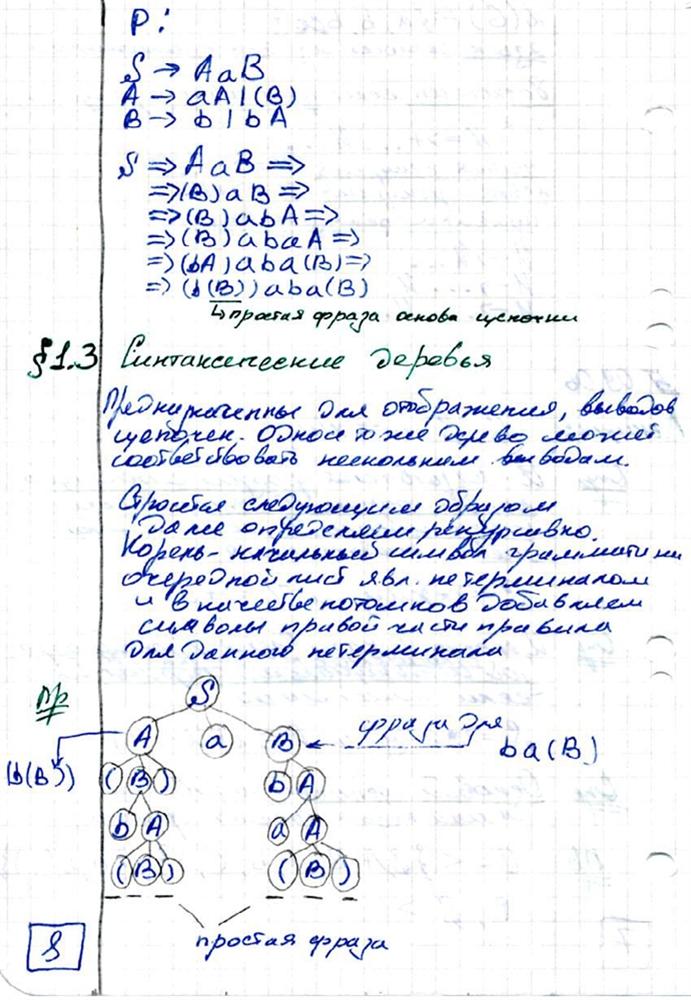 P:
S → AaB
A → aA|(B)
B → b|bA
S ⇒ AaB ⇒
⇒(B)aB ⇒
⇒(B)abA ⇒
⇒(B)abaA ⇒
⇒(bA)aba(B)⇒
⇒(b(B))aba(B)
↳ простая фраза основа цепочки
§1.3 Синтаксические деревья
Предназначены для отображения, выводов
цепочек. Одно и то же дерево может
соответствовать нескольким выводам.
Строится следующим образом
Далее определяем рекурсивно.
Корень - начальный символ грамматики
очередной лист явл. нетерминалом
и в качестве потомков добавляем
символы правой части правила
для данного нетерминала
Пр
S
A a B фраза для
ba(B)
(b(B))
( B ) b A
b A a A
( B ) ( B )
простая фраза
8